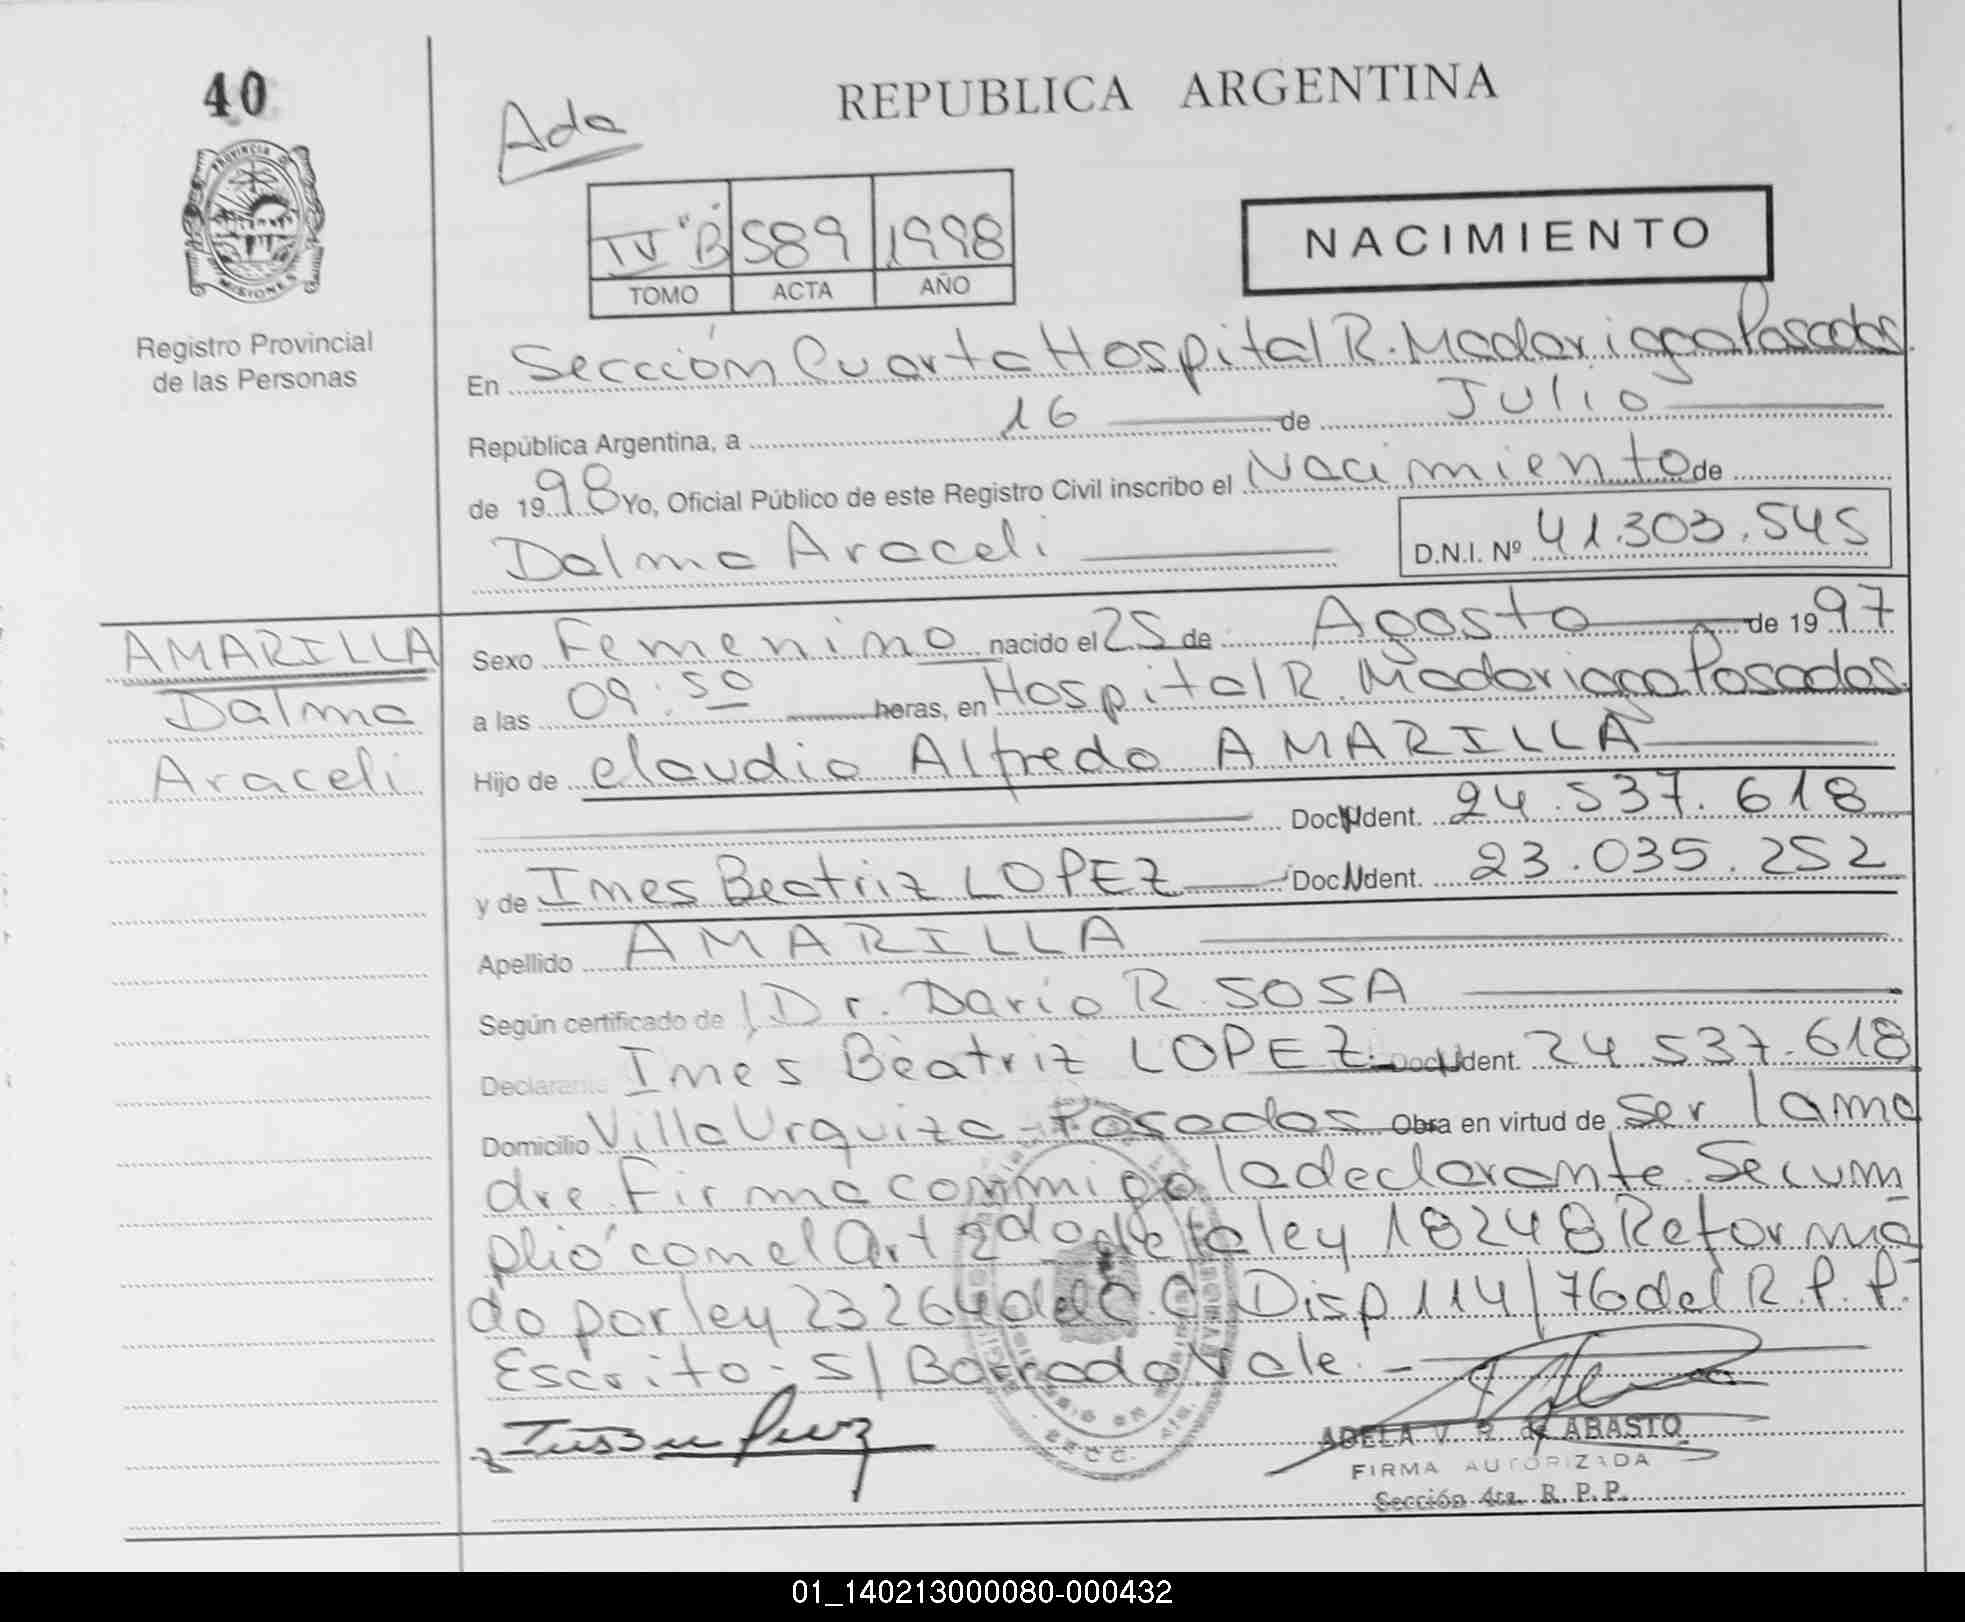 40
Ada
REPUBLICA ARGENTINA
PROVINCIA DE
MISIONES
Registro Provincial
de las Personas
IV "B" 589 1998
TOMO ACTA AÑO
NACIMIENTO
En Sección Cuarta Hospital R. Madariaga Posadas.
República Argentina, a 16 de Julio
de 1998 Yo, Oficial Público de este Registro Civil inscribo el Nacimiento de
Dalma Araceli
D.N.I. Nº 41.303.545
AMARILLA
Dalma
Araceli
Sexo Femenino nacido el 25 de Agosto de 1997
a las 09:50 horas, en Hospital R. Madariaga Posadas.
Hijo de Claudio Alfredo AMARILLA
Doc. N Ident. 24.537.618
y de Ines Beatriz LOPEZ Doc. N Ident. 23.035.252
Apellido AMARILLA
Según certificado de Dr. Dario R. SOSA
Declarante Ines Beatriz LOPEZ. Doc. N Ident. 24.537.618
Domicilio Villa Urquiza - Posadas Obra en virtud de ser la ma
dre. Firma conmigo la declarante. Se cum
plió con el Art 2do de la ley 18248 Reforma
do por ley 23264 del C.C. Disp 114/76 del R.P.P.
Escrito - S/ Borrado Vale. -
ADELA V. R. de ABASTO
FIRMA AUTORIZADA
Sección 4ta. R. P. P.
01_140213000080-000432